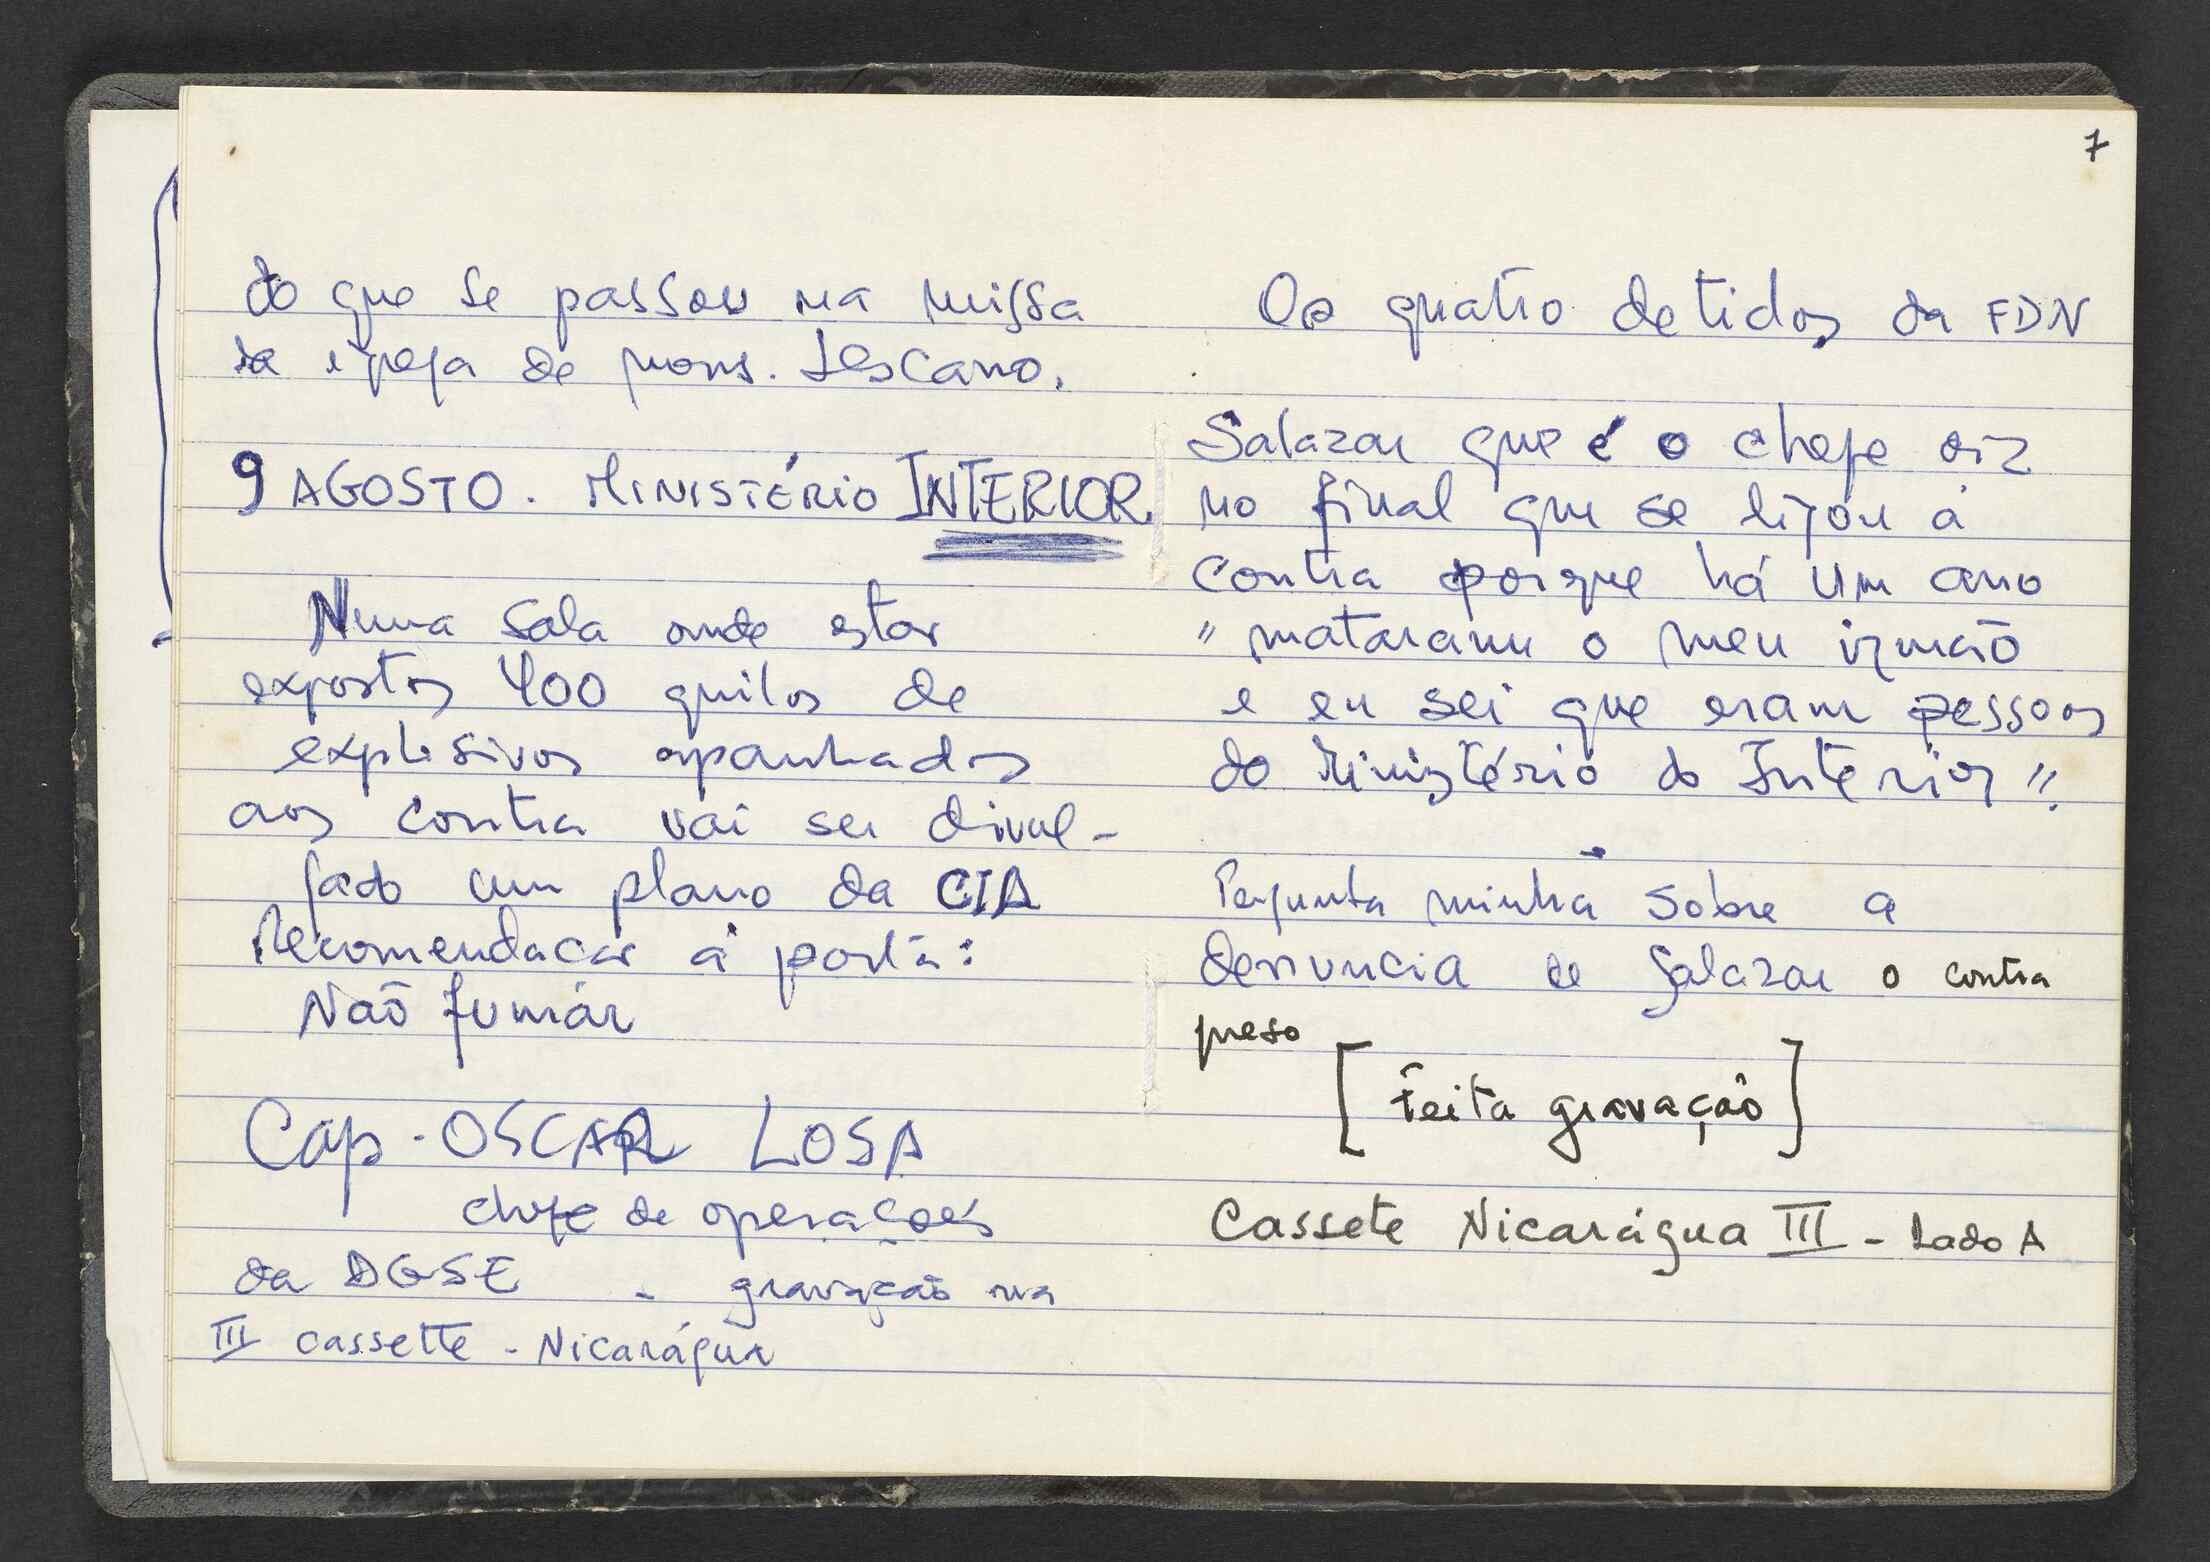 do que se passou na missa
da igreja de mons. Lescano.
9 AGOSTO. MINISTÉRIO INTERIOR.
Numa sala onde estão
expostos 400 quilos de
explosivos apanhados
aos contra vai ser divul-
gado um plano da CIA
Recomendação à porta:
Não fumar
Cap. OSCAR LOSA
chefe de operações
da DGSE - gravação na
III cassette - Nicarágua
7
Os quatro detidos da FDN
Salazar que é o chefe diz
no final que se ligou à
Contra porque há um ano
"mataram o meu irmão
e eu sei que eram pessoas
do Ministério do Interior".
Pergunta minha sobre a
denuncia de Salazar o contra
preso
[Feita gravação]
Cassete Nicarágua III - Lado A